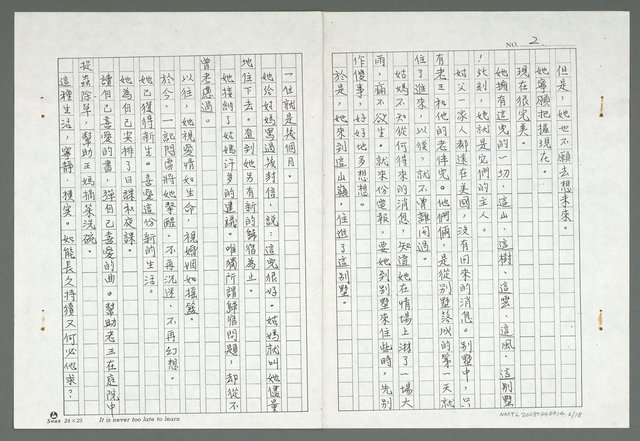 NO. 2
但是,她也不願去想未來。
她寧願把握現在。
現在很完美。
她擁有這兒的一切,這山、這樹、這雲、這風、這別墅
!此刻,她就是它們的主人。
姑父一家人都還在美國,沒有回來的消息。別墅中,只
有老王和他的老伴兒。他們倆,是從別墅落成的第一天就
住了進來,以後,就不曾離開過。
姑媽不知從何得來的消息,知道她在情場上淋了一場大
雨,痛不欲生。就來份電報,要她到別墅來住些時,先別
作傻事,好好地多想想。
於是,她來到這山巔,住進了這別墅。
一住就是幾個月。
她給姑媽寫過幾封信,說:這兒很好。姑媽就叫她儘量
地住下去。直到她另有新的歸宿為止。
她接納了姑媽許多的建議。唯獨所謂歸宿問題,却從不
曾考慮過。
以往,她視愛情如生命,視婚姻如搖籃。
於今,一記悶雷將她擊醒,不再沉迷、不再幻想。
她已獲得新生。喜愛這份新的生活。
她為自己安排了日課和夜課。
讀自己喜愛的書,彈自己喜愛的曲。幫助老王在庭院中
捉蟲除草,幫助王媽摘菜洗碗。
這種生活,寧靜、樸實。如能長久持續又何必他求?
Swan 24×25 It is never too late to learn